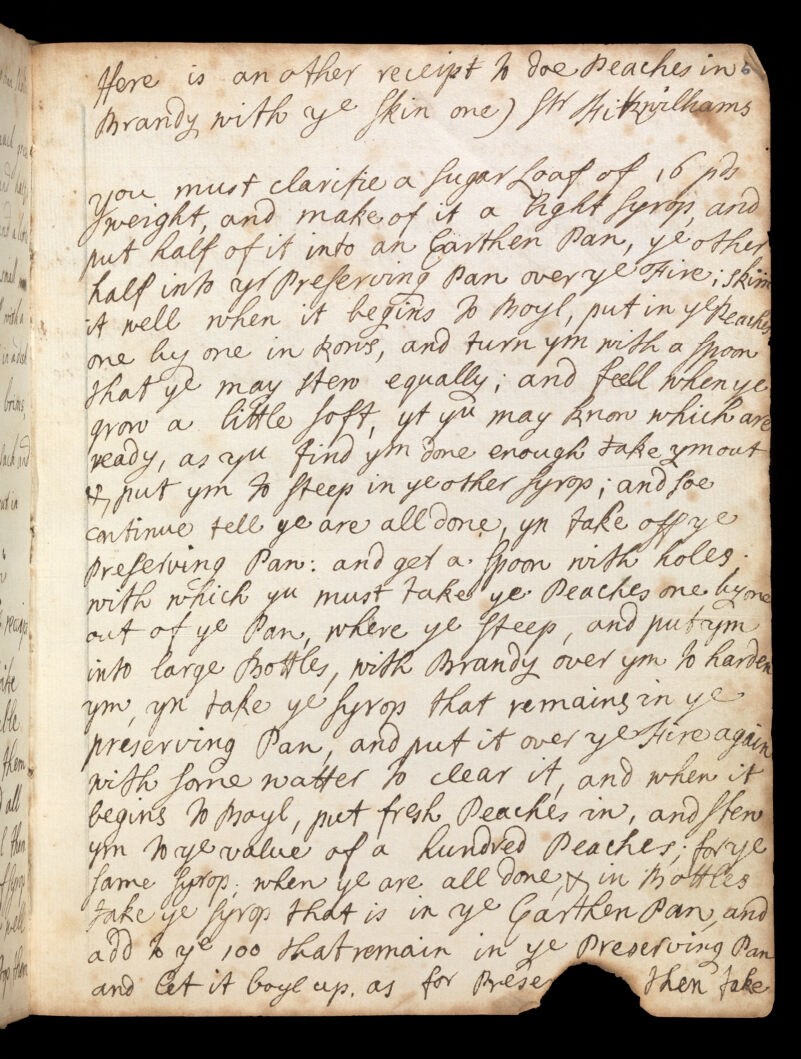 Here is an other receipt to doe Peaches in 6
Brandy with ye skin one) Sr Fitzwilhams
you must clarifie a sugar Loaf of 16 pds
weight, and make of it a light syrop, and
put half of it into an Earthen Pan, ye other
half into yr Preserving Pan over ye Fire; skim
it well when it begins to Boyl, put in ye Peaches
one by one in Rows, and turn ym with a spoon
that ye may stew equally; and feell when ye
grow a little soft, yt yu may know which are
ready, as yu find ym done enough take ym out
& put ym to steep in ye other syrop; and soe
continue tell ye are all done, yn take off ye
preserving Pan: and get a spoon with holes
with which yu must take ye Peaches one by one
out of ye Pan, where ye steep, and put ym
into large Bottles, with Brandy over ym to harden
ym, yn take ye syrop that remains in ye
preserving Pan, and put it over ye Fire again
with some watter to clear it, and when it
begins to Boyl, put fresh Peaches in, and stew
ym to ye value of a hundred Peaches; for ye
same syrop; when ye are all done, & in Bottles
take ye syrop that is in ye Earthen Pan, and
add to ye 100 that remain in ye Preserving Pan
and let it boyl up. as for Preser then take